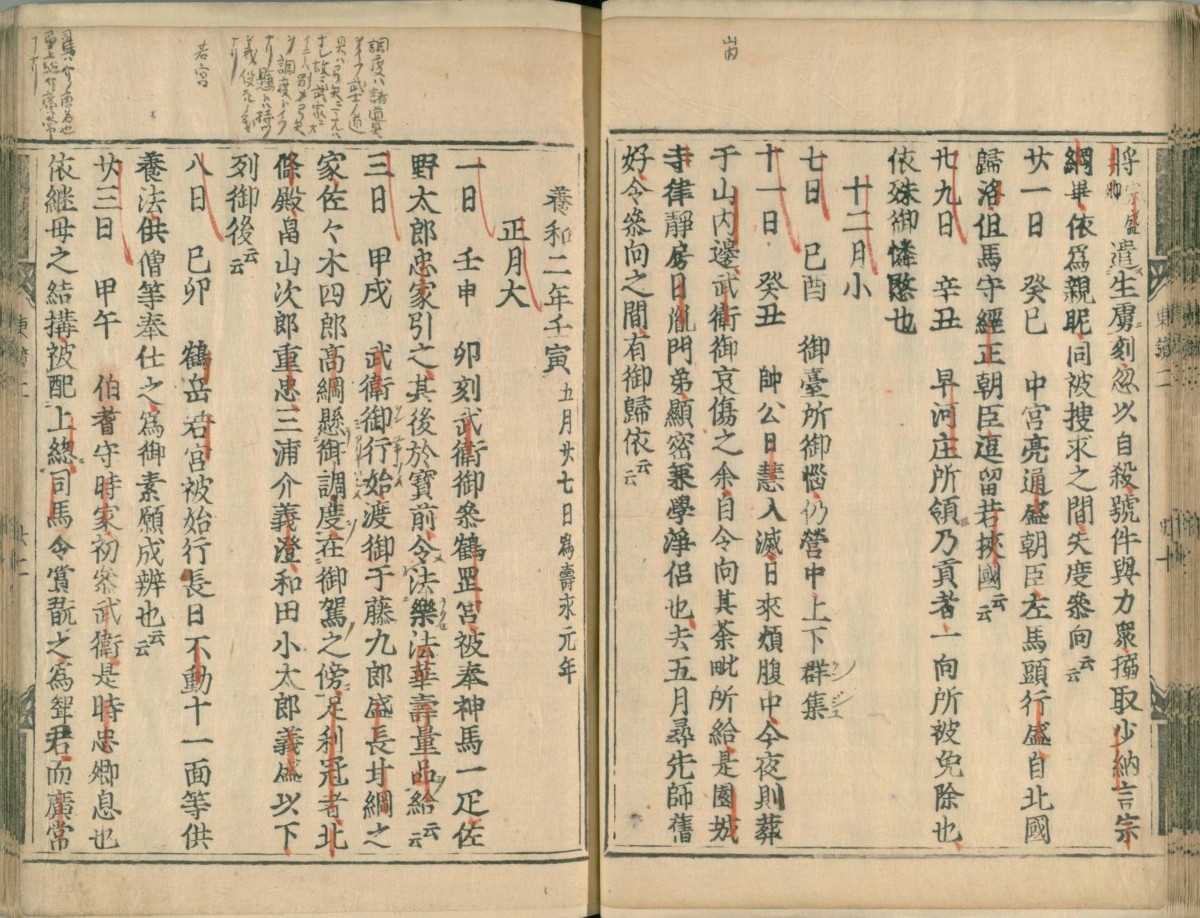 将宗盛卿遣生虜刻忽以自殺號件與力衆搦取少納言宗
綱畢依爲親昵同被捜求之間失度參向云云
廿一日　癸巳　中宮亮通盛朝臣左馬頭行盛自北國
歸洛但馬守經正朝臣逗留若挾國云云
廿九日　辛丑　早河庄所領乃貢者一向所被免除也
依殊御憐愍也
十二月小
七日　己酉　御臺所御惱仍營中上下群集
十一日　癸丑　帥公日慧入滅日來煩腹中今夜則葬
于山内邊武衛御哀傷之余自令向其茶毗所給是園城
寺律靜房日胤門弟顯密兼學淨侶也去五月尋先師舊
好令參向之間有御歸依云云
養和二年壬寅五月廿七日爲壽永元年
正月大
一日　壬申　卯刻武衛御參鶴罡宮被奉神馬一疋佐
野太郎忠家引之其後於寶前令法樂法華壽量品給云云
三日　甲戌　武衛御行始渡御于藤九郎盛長甘綱之
家佐々木四郎高綱懸御調度在御駕之傍足利冠者北
條殿畠山次郎重忠三浦介義澄和田小太郎義盛以下
列御後云云
八日　己卯　鶴岳若宮被始行長日不動十一面等供
養法供僧等奉仕之爲御素願成辨也云云
廿三日　甲午　伯耆守時家初參武衛是時忠卿息也
依継母之結搆被配上總司馬令賞翫之爲聟君而廣常
調度ハ諸具
若宮